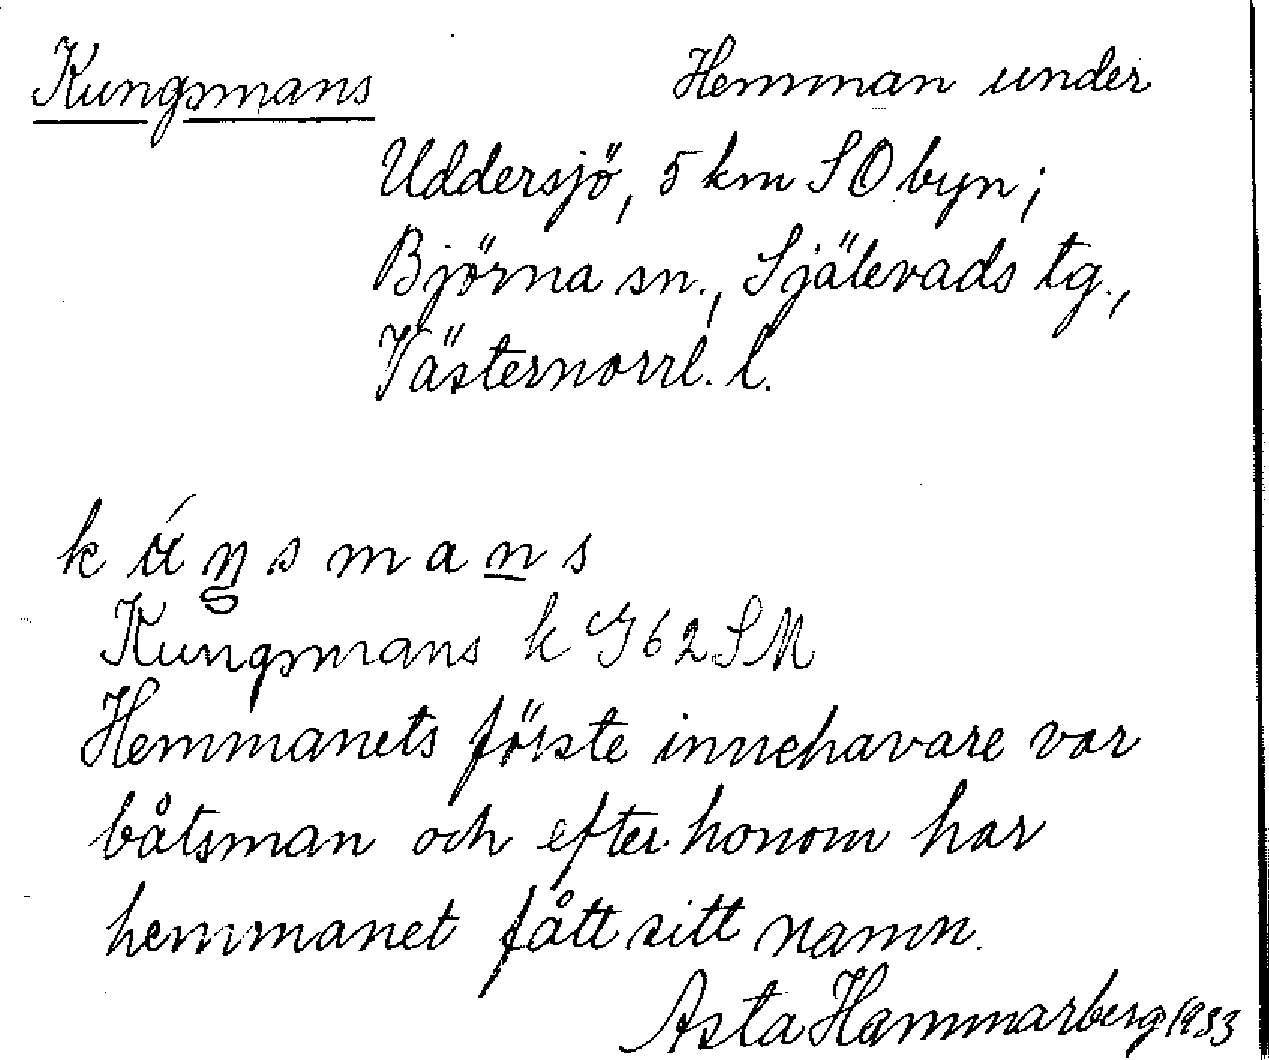 Kungsmans Hemman under
Uddersjö, 5 km SO byn;
Björna sn., Själevads tg.,
Västernorrl. l.
kúŋsmans
Kungsmans k G62SM
Hemmanets förste innehavare var
båtsman och efter honom har
hemmanet fått sitt namn.
Asta Hammarberg 1933